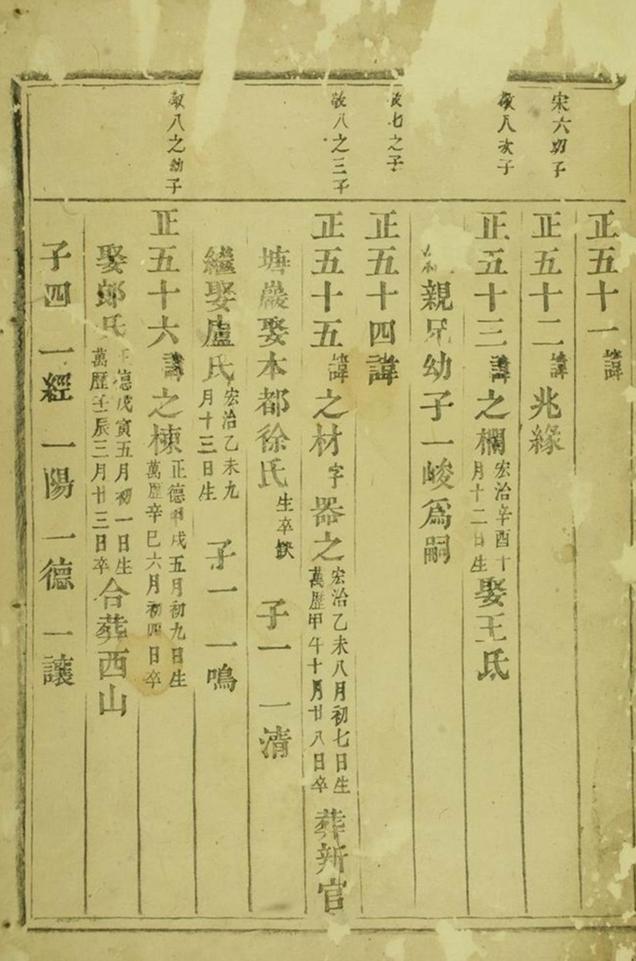 正五十一 諱
宋六幼子
正五十二 諱 兆緣
敬八次子
正五十三 諱 之欄 宏治辛酉十月十二日生 娶王氏
親兄幼子一峻為嗣
七之子
正五十四 諱
敬八之三子
正五十五 諱 之材 字 器之 宏治乙未八月初七日生 萬歷甲午十月廿八日卒 葬新官
塘巖娶本都徐氏 生卒缺 子一 一清
繼娶盧氏 宏治乙未九月十三日生 子一 一鳴
敬八之幼子
正五十六 諱 之棟 正德甲戌五月初九日生 萬歷辛巳六月初四日卒
娶郎氏 正德戊寅五月初一日生 萬歷壬辰三月廿三日卒 合葬西山
子四 一經 一陽 一德 一讓